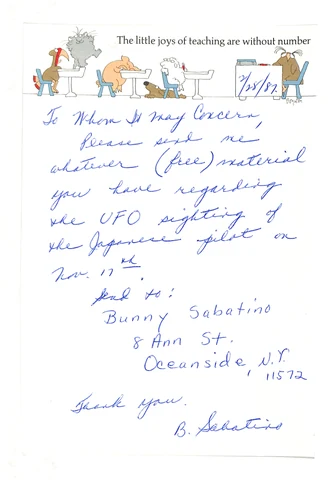 The little joys of teaching are without number
2/28/87
To Whom It May Concern,
Please send me
whatever (free) material
you have regarding
the UFO sighting of
the Japanese pilot on
Nov. 17th.
Send to:
Bunny Sabatino
8 Ann St.
Oceanside, N.Y.
11572
Thank you.
B. Sabatino